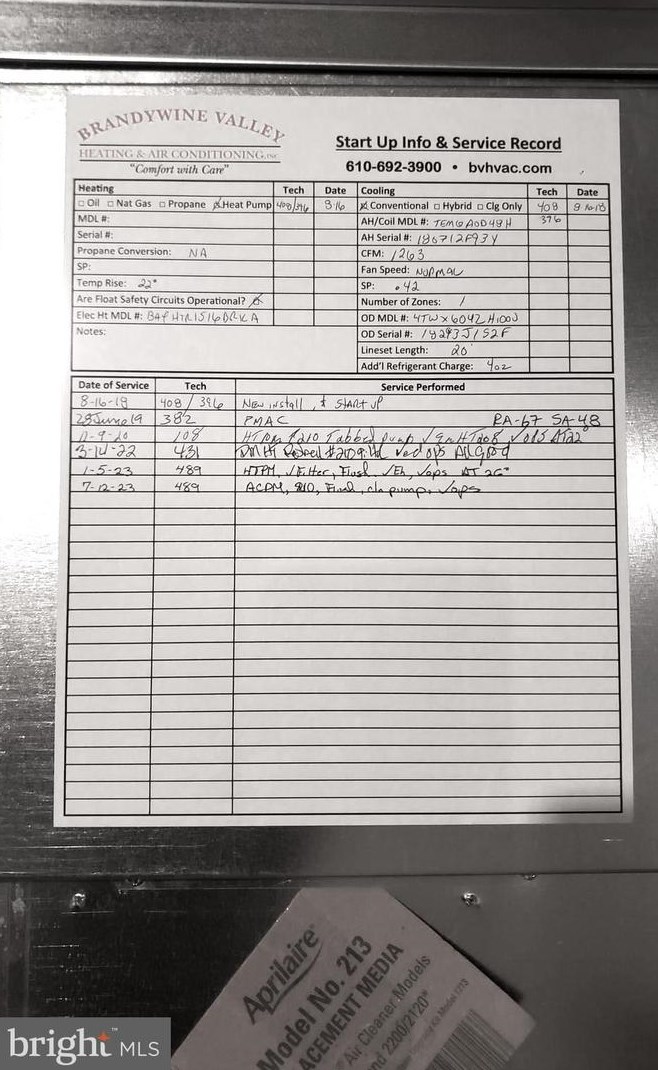 BRANDYWINE VALLEY
HEATING & AIR CONDITIONING, INC
"Comfort with Care"
Start Up Info & Service Record
610-692-3900 • bvhvac.com
Heating Tech Date
□ Oil □ Nat Gas □ Propane ☒ Heat Pump 408/396 8-16
MDL #:
Serial #:
Propane Conversion: NA
SP:
Temp Rise: 22°
Are Float Safety Circuits Operational?
Elec Ht MDL #: BAYHTR1516BRKA
Notes:
Cooling Tech Date
☒ Conventional □ Hybrid □ Clg Only 408 8-16-18
AH/Coil MDL #: TEM6A0D48H 396
AH Serial #: 180712F93Y
CFM: 1263
Fan Speed: NORMAL
SP: .42
Number of Zones: 1
OD MDL #: 4TWX6042H100
OD Serial #: 18293J1S2F
Lineset Length: 20'
Add'l Refrigerant Charge: 4oz
Date of Service Tech Service Performed
8-16-18 408/396 NEW install, & START UP
28 June 19 382 PMAC RA-67 SA-48
11-9-20 108 HTPM #210 Tabbed pump
3-14-22 431 All Good
1-5-23 489 HTPM, √Filter, Flush √Eh, √ops ΔT 26°
7-12-23 489 ACPM, 210, Flush, cln pump, √ops
Aprilaire
Model No. 213
ACEMENT MEDIA
Air Cleaner Models
nd 2200/2120*
bright MLS